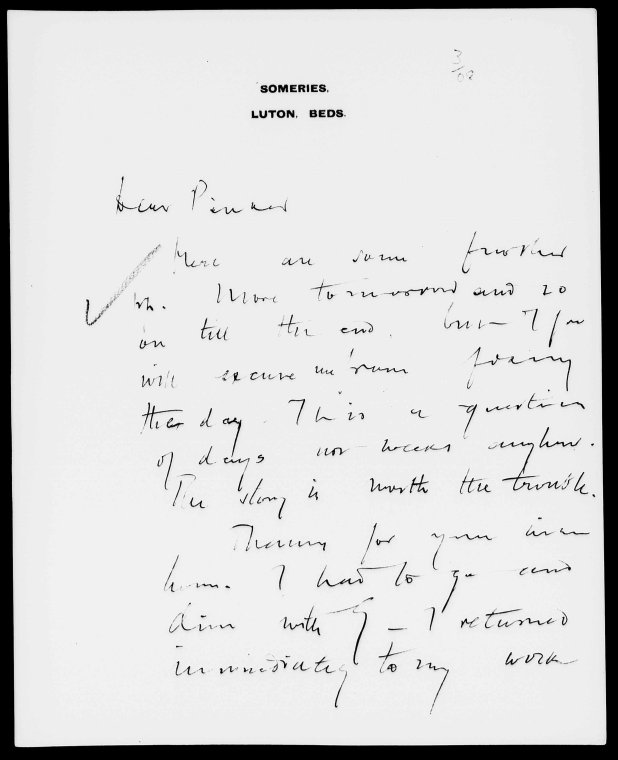 3/08
SOMERIES.
LUTON. BEDS.
Dear Pinker
Here are some further
pp. More tomorrow and so
on till the end. But if you
will secure me room
the day. This is a question
of days not weeks anyhow.
The story is worth the trouble.
for your
I had to go and
dine with G — I returned
immediately to my work